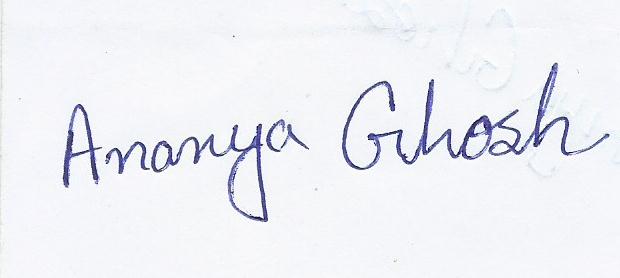 Ananya Ghosh